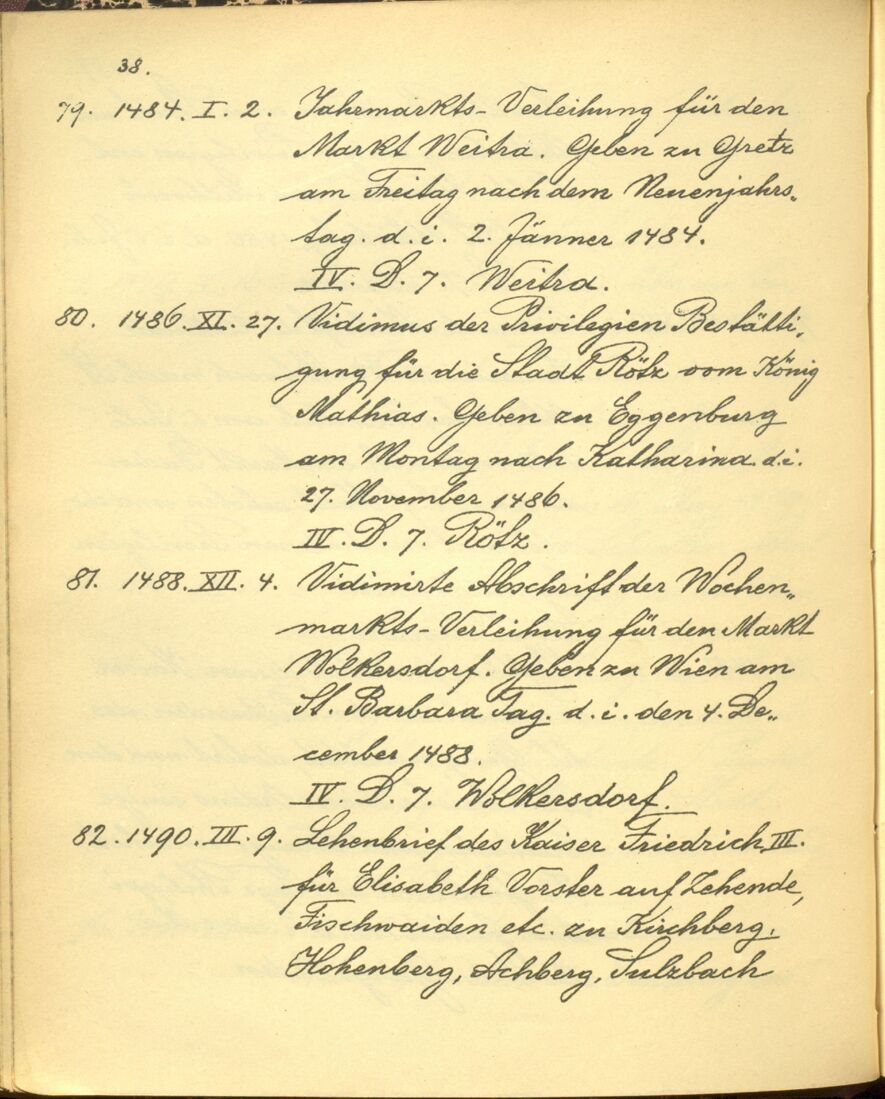 38.
79. 1484. I. 2. Jahrmarkts-Verleihung für den
Markt Weitra. Geben zu Gretz
am Freitag nach dem Neuenjahrs-
tag. d. i. 2. Jänner 1484.
IV. D. 7. Weitra.
80. 1486. XI. 27. Vidimus der Privilegien Bestätti-
gung für die Stadt Rötz vom König
Mathias. Geben zu Eggenburg
am Montag nach Katharina d. i.
27. November 1486.
IV. D. 7. Rötz.
81. 1488. XII. 4. Vidimirte Abschrift der Wochen„
markts-Verleihung für den Markt
Wolkersdorf. Geben zu Wien am
St. Barbara Tag. d. i. den 4. De„
cember 1488.
IV. D. 7. Wolkersdorf.
82. 1490. III. 9. Lehenbrief des Kaiser Friedrich III.
für Elisabeth Vorster auf Zehende,
Fischwaiden etc. zu Kirchberg,
Hohenberg, Achberg, Sulzbach